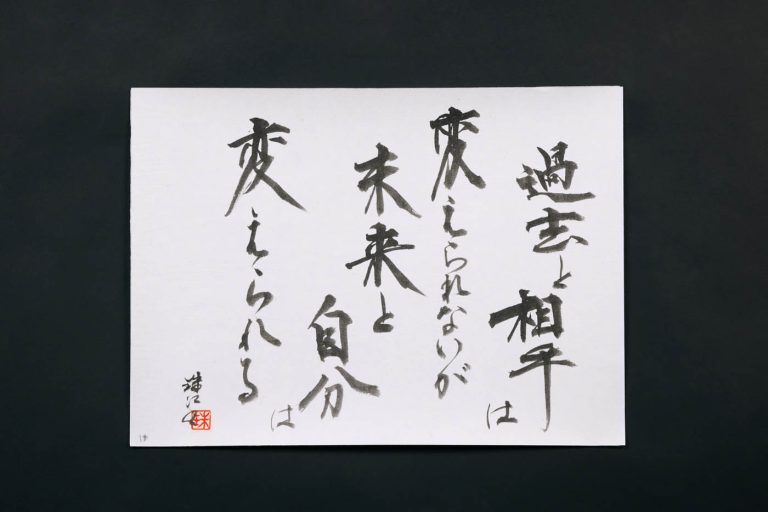 過去と相手は
変えられないが
未来と自分は
変えられる
珠江